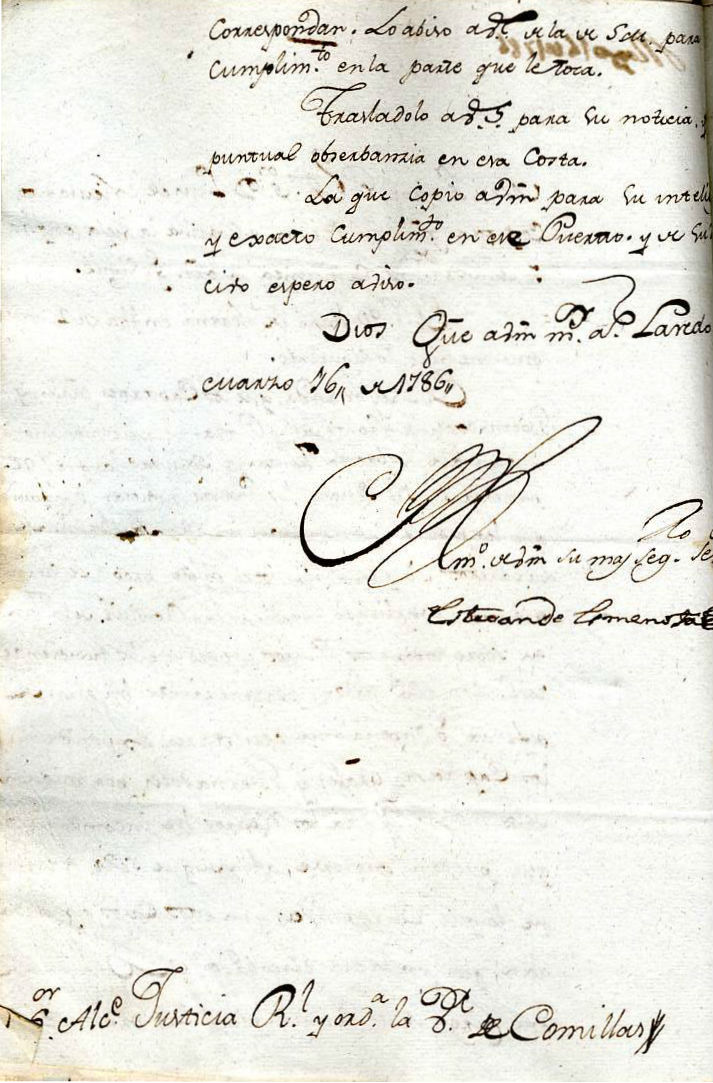 Correspondan. Lo aviso a V.S. para
Cumplim.to en la parte que le toca.
Trasladolo a V.S. para su noticia, y
puntual obserbanzia en esa Costa.
La que copio a Vm para su intelig
y exacto Cumplim.to en ese Puerto. y de su
civo espero aviso.
Dios Gue a Vm m.s a.s Laredo
Marzo 16,, de 1786,,
m.o de Vm su maj seg.o Se
Esteban de
S.or Alc.e Justicia R.l y ord.a la V.a de Comillas